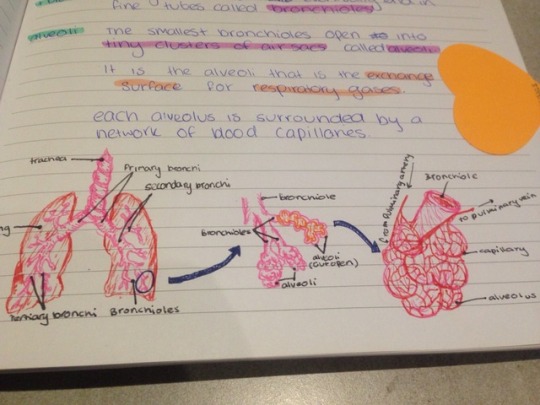 fine tubes called bronchioles
alveoli
The smallest bronchioles open into
tiny clusters of air sacs called alveoli
It is the alveoli that is the exchange
surface for respiratory gases.
each alveolus is surrounded by a
network of blood capillaries.
trachea
Primary bronchi
secondary bronchi
tertiary bronchi
Bronchioles
bronchiole
Bronchioles
alveoli
alveoli
from Pulminary artery
Bronchiole
to pulminary vein
capillary
alveolus